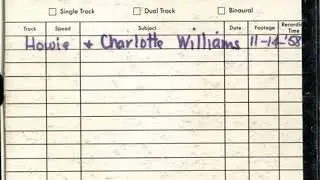 Single Track Dual Track Binaural
Track Speed Subject Date Footage Recording Time
Howie & Charlotte Williams 11-14-'58